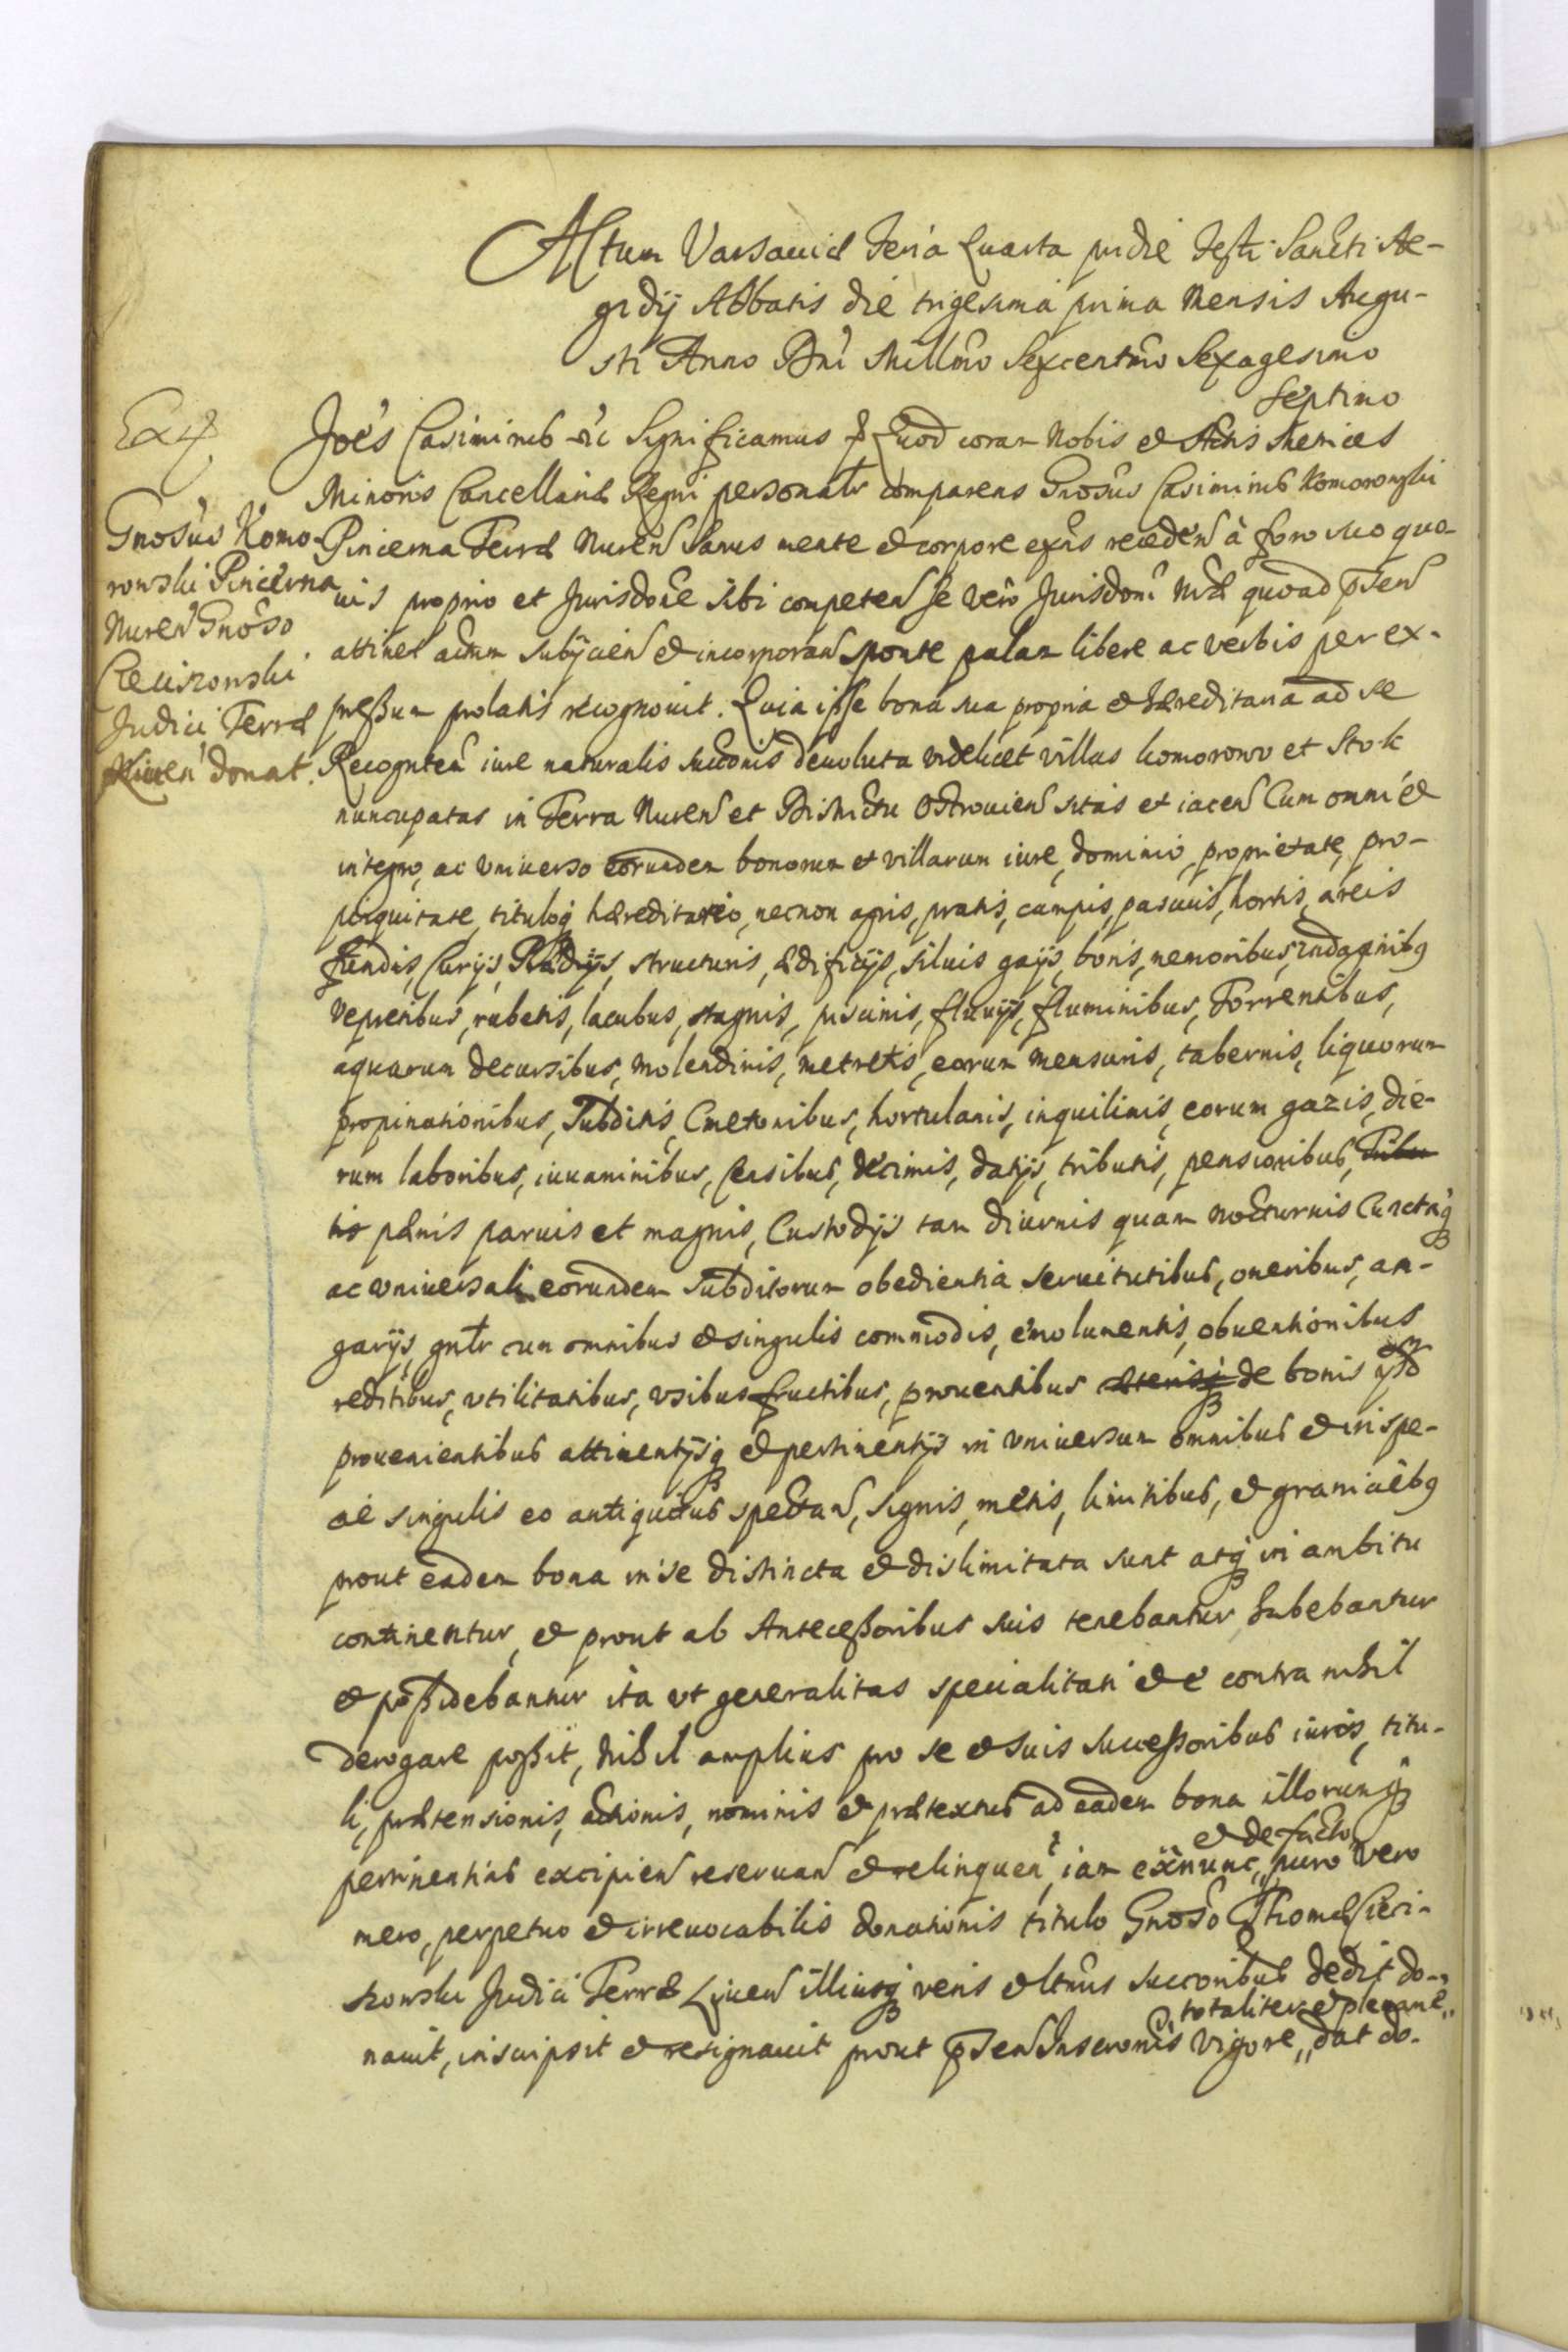 Actum Varsauiæ Feria Quarta pridie Festi Sancti Ae-
gidij Abbatis die trigesima prima Mensis Augu-
sti Anno Dni Millmo Sexcentmo Sexagesimo
septimo
Joes Casimirus etc Significamus etc Quod coram Nobis et Actis Metrices
Minoris Cancellariæ Regni personalr comparens Gnosus Casimirus Komorowski
Pincerna Terræ Nuren sanus mente et corpore exns receden à foro suo quo-
uis proprio et Jurisdone sibi competen se vero Jurisdoni Nræ quoad psen
attinet actum subijcien et incorporan sponte palam libere ac verbis per ex-
pressum prolatis recognouit. Quia ipse bona sua propria et hæreditaria ad se
Recognten iure naturalis succonis deuoluta videlicet villas komorowo et Stok
nuncupatas in Terra Nuren et Districtu Ostrouien sitas et iacen Cum omni et
integro, ac vniuerso eorundem bonorum et villarum iure, dominio, proprietate, pro-
pinquitate, tituloq hæreditario, necnon agris, pratis, campis, pascuis, hortis, areis
fundis, Curijs, Prædijs, structuris, ædificijs, siluis gaijs, boris, nemoribus, indaginibq
vepretibus, rubetis, lacubus, stagnis, piscinis, fluuijs, fluminibus, Torrentibus,
aquarum decursibus, molendinis, metretis, earum mensuris, tabernis, liquorum
propinationibus, Subditis, Cmetonibus, hortulanis, inquilinis, eorum gazis, die-
rum laboribus, iuuaminibus, Censibus, decimis, datijs, tributis, pensionibus, Tribu
tis pænis paruis et magnis, Custodijs tam diurnis quam nocturnis Cunctaq
ac vniuersali eorundem subditorum obedientia seruitutibus, oneribus, an-
garijs, gnlr cum omnibus et singulis commodis, emolumentis, obuentionibus
reditibus, vtilitatibus, vsibus fructibus, prouentibus de bonis
prouenientibus attinentijsq et pertinentijs in vniuersum omnibus et in spe-
cie singulis eo antiquitus spectan, signis, metis, limitibus, et graniciebq
prout eadem bona in se distincta et dislimitata sunt atq in ambitu
continentur, et prout ab Antecessoribus suis tenebantur, habebantur
et possidebantur ita vt generalitas specialitati et e contra nihil
derogare possit, Nihil amplius pro se et suis successoribus iuris, titu-
li, prætensionis, actionis, nominis et prætextus ad eadem bona illorumq
et de facto
pertinentias excipien reseruan et relinquen, iam ex nunc,, puro vero
mero, perpetuo et irreuocabilis donationis titulo Gnoso Thomæ Cieci-
szowski Judici Terræ Liuen illiusq veris et ltmis succoribus dedit do-
totaliter et plenarie,,
nauit, inscripsit et resignauit prout psen Inscronis vigore,, dat do-
Ext
Gnosus Komo-
rowski Pincerna
Nuren Gnoso
Cieciszowski
Judici Terræ
Liuen donat.